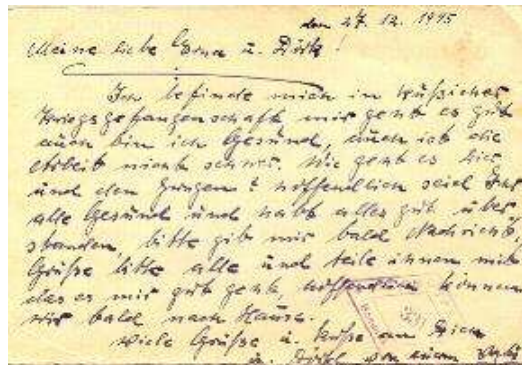 den 27. 12. 1945
Meine liebe Erna u.
Ich befinde mich in rußischer
Kriegsgefangenschaft mir geht es gut
auch bin ich Gesund, auch ist die
Arbeit nicht schwer. Wie geht es Dir
und den Jungen? hoffendlich seid Ihr
alle Gesund und habt alles gut über,
standen, bitte gib mir bald Nachricht,
Grüße bitte alle und teile ihnen mit
das es mir gut geht, hoffendlich können
wir bald nach Hause.
Viele Grüße u. Küße an Dich
u. von eurem